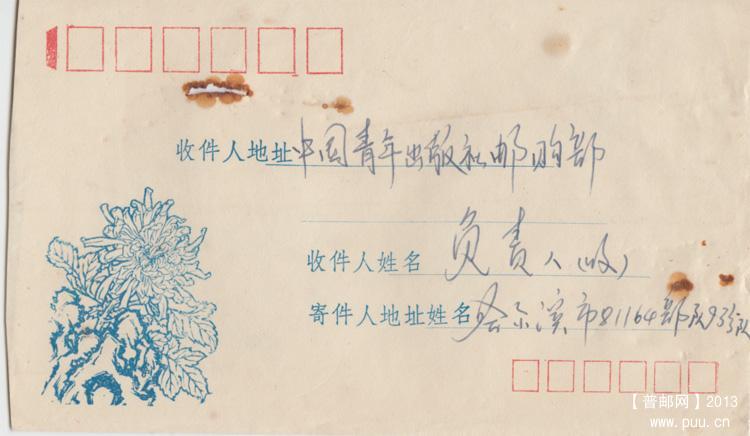 收件人地址 中国青年出版社邮购部
收件人姓名 负责人(收)
寄件人地址姓名 哈尔滨市81164部队93分队
【普邮网】2013
www.puu.cn